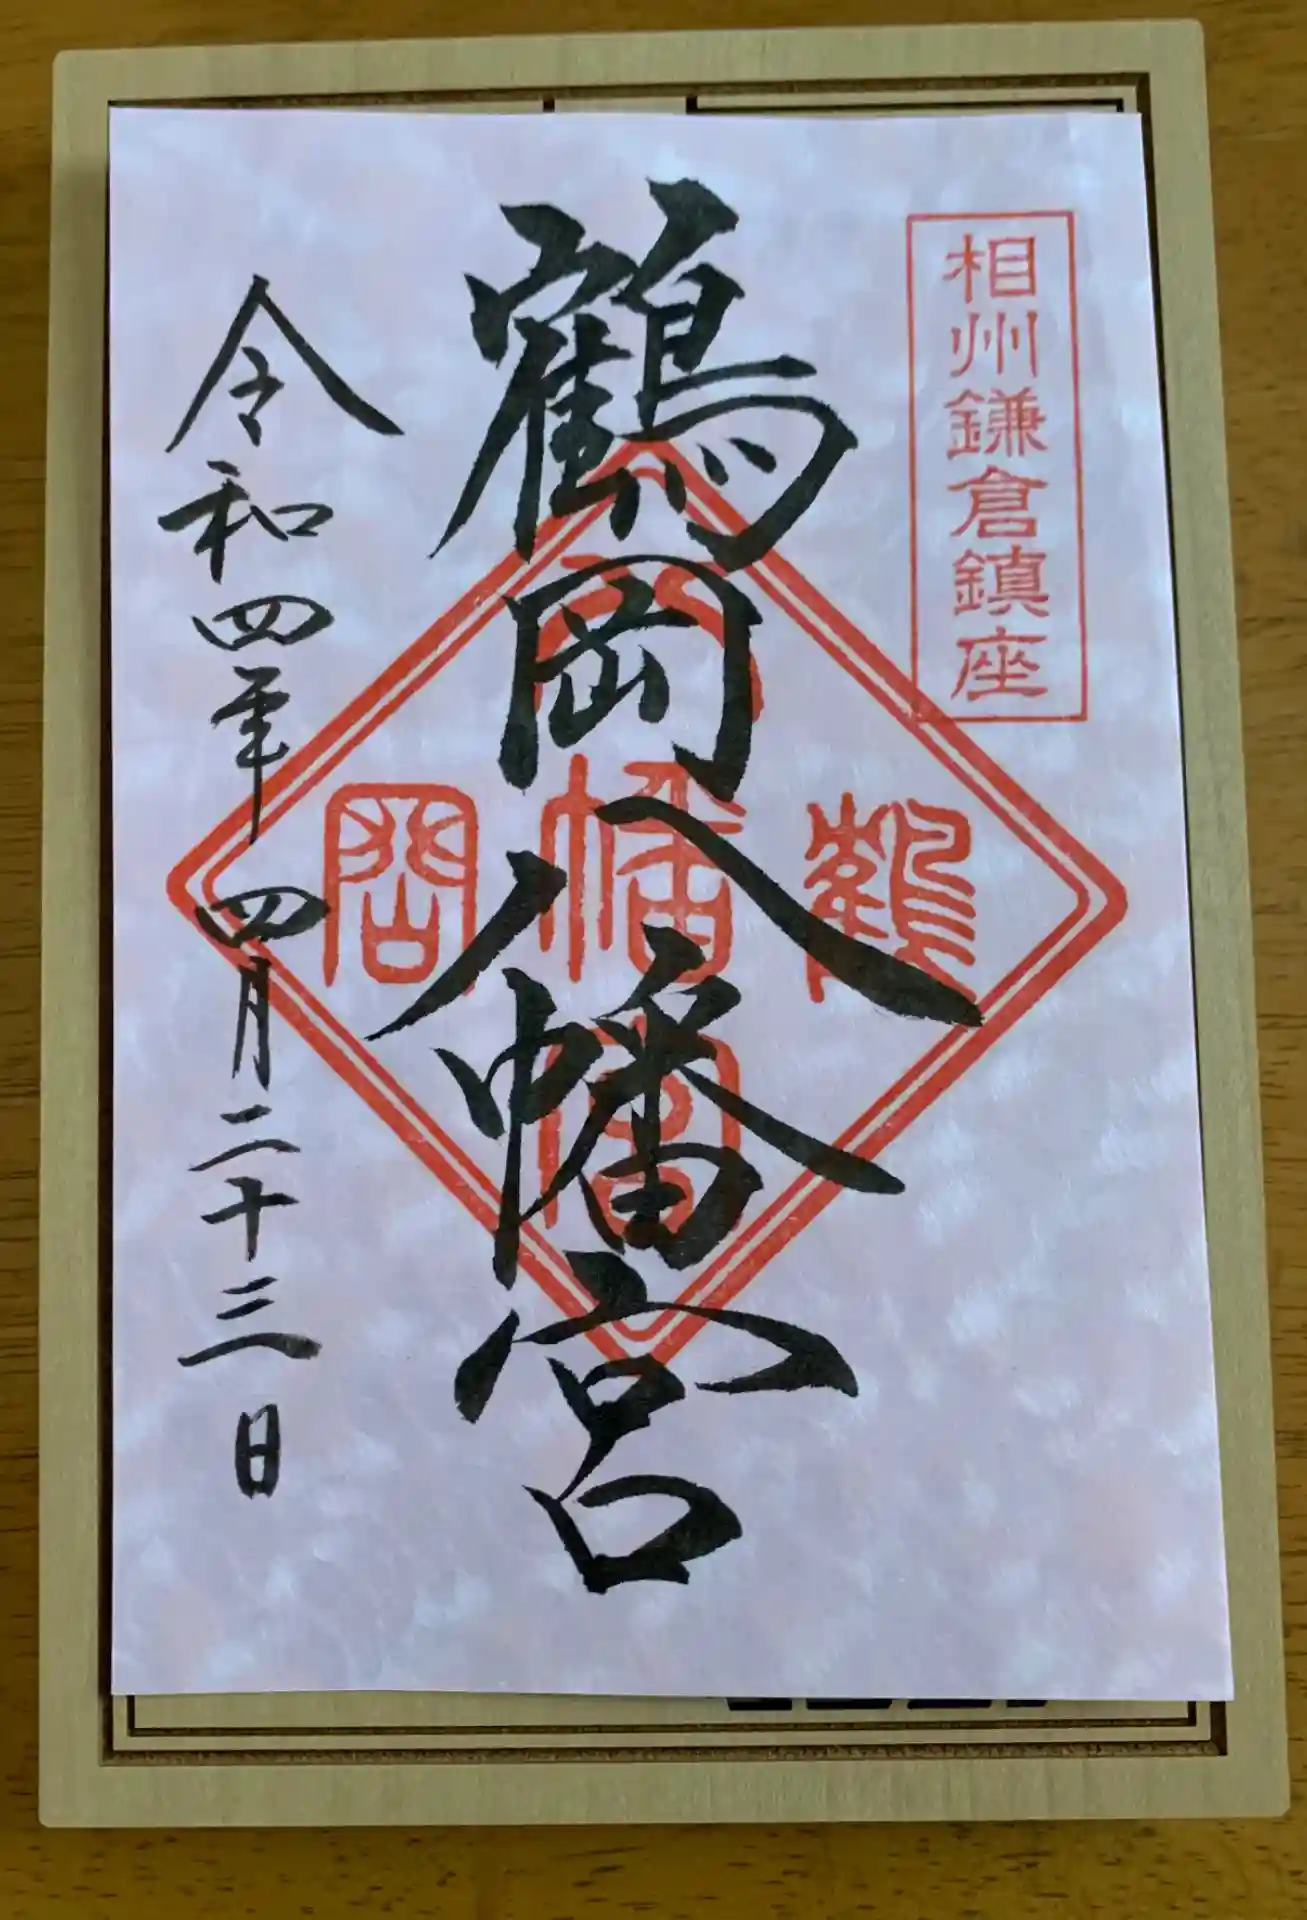 相州鎌倉鎮座
鶴岡八幡宮
鶴
八幡宮
岡
令和四年四月二十三日